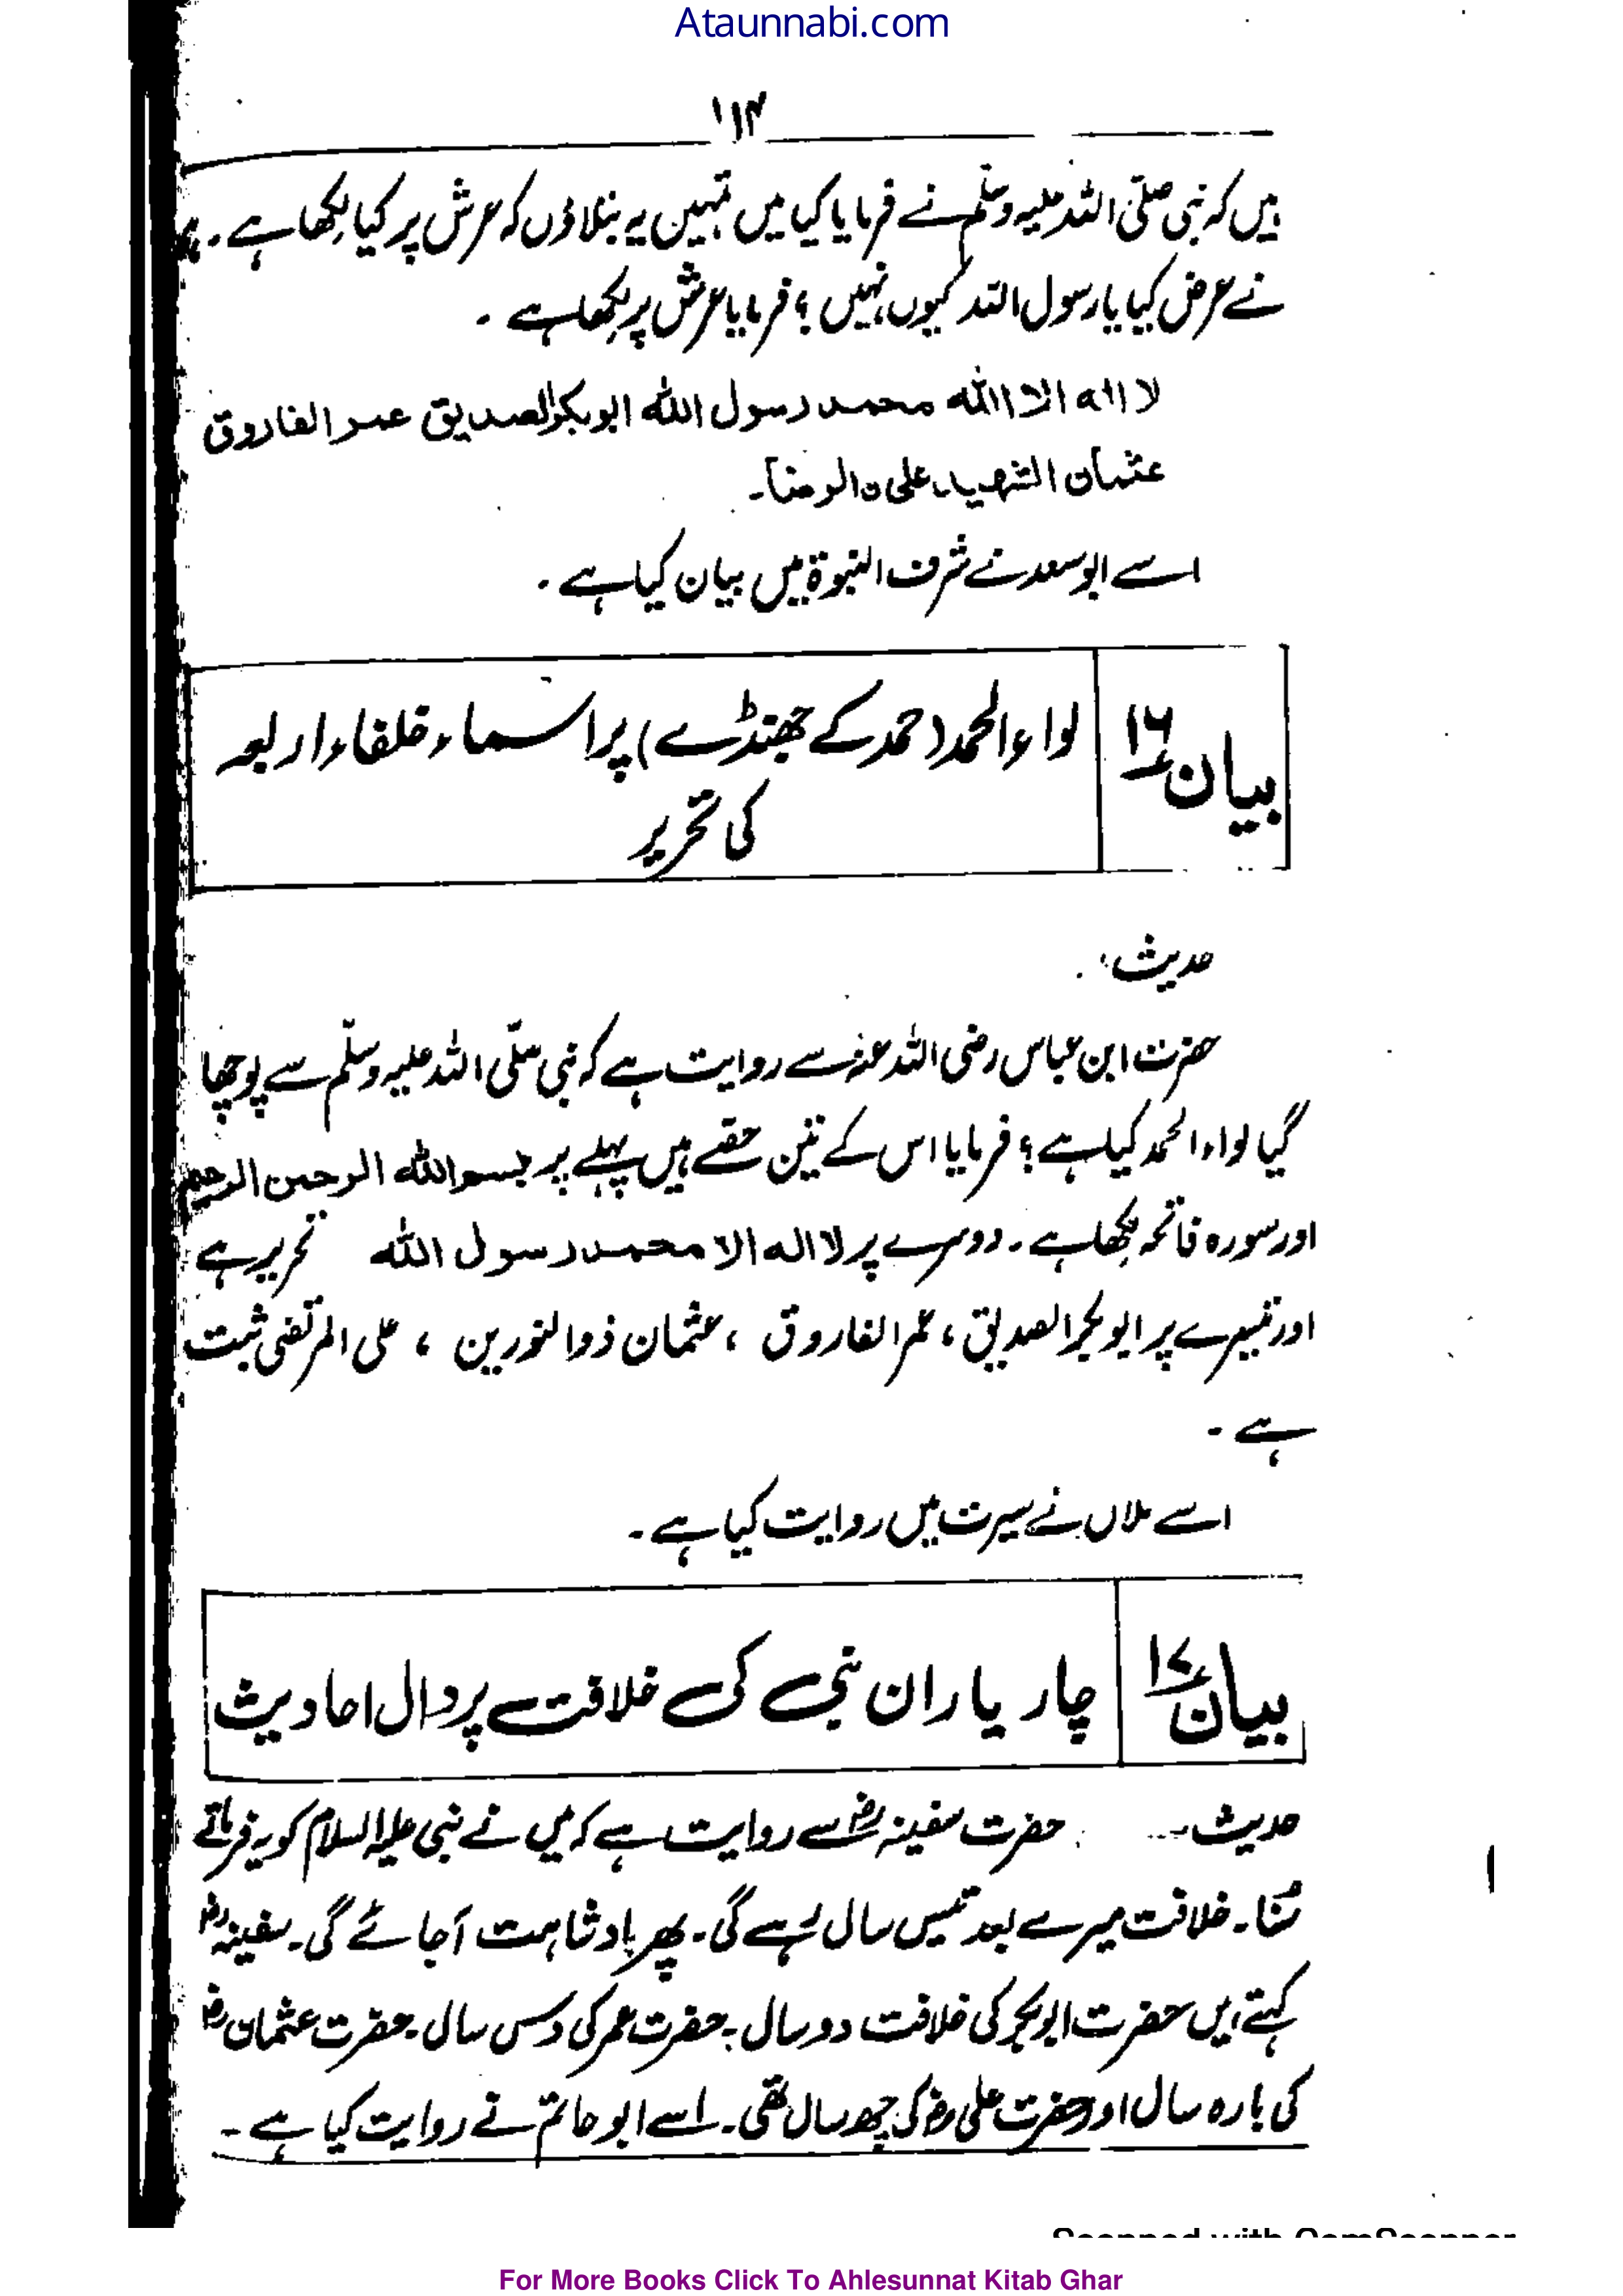 Ataunnabi.com
۱۱۴
ہیں کہ نبی صلّی اللہ علیہ وسلّم نے فرمایا کیا میں تمہیں یہ بتلاؤں کہ عرش پر کیا لکھا ہے۔
نے عرض کیا یا رسول اللہ کیوں نہیں؟ فرمایا عرش پر لکھا ہے۔
لا الہ الا اللہ محمد رسول اللہ ابوبکر الصدیق عمر الفاروق
عثمان الشھید علی ن الرضا۔
اسے ابوسعد نے شرف النبوۃ میں بیان کیا ہے۔
بیان ۱۶
لواء الحمد (حمد کے جھنڈے) پر اسماء خلفاء اربعہ
کی تحریر
حدیث
حضرت ابن عباس رضی اللہ عنہ سے روایت ہے کہ نبی صلّی اللہ علیہ وسلّم سے پوچھا
گیا لواء الحمد کیا ہے؟ فرمایا اس کے تین حصّے ہیں پہلے پر بسم اللہ الرحمن الرحیم
اور سورہ فاتحہ لکھا ہے۔ دوسرے پر لا الہ الا محمد رسول اللہ تحریر ہے
اور تیسرے پر ابوبکر الصدیق، عمر الفاروق، عثمان ذوالنورین، علی المرتضی ثبت
ہے۔
اسے ملاں نے سیرت میں روایت کیا ہے۔
بیان ۱۷
چار یاران نبی کی خلافت پر دال احادیث
حدیث۔ حضرت سفینہ رض سے روایت ہے کہ میں نے نبی علیہ السلام کو یہ فرماتے
سُنا۔ خلافت میرے بعد تیس سال رہے گی۔ پھر بادشاہت آجائے گی۔ سفینہ رض
کہتے ہیں حضرت ابوبکر کی خلافت دو سال۔ حضرت عمر کی دس سال۔ حضرت عثمان رض
کی بارہ سال اور حضرت علی رض کی چھ سال تھی۔ اسے ابو حاتم نے روایت کیا ہے۔
Scanned with CamScanner
For More Books Click To Ahlesunnat Kitab Ghar